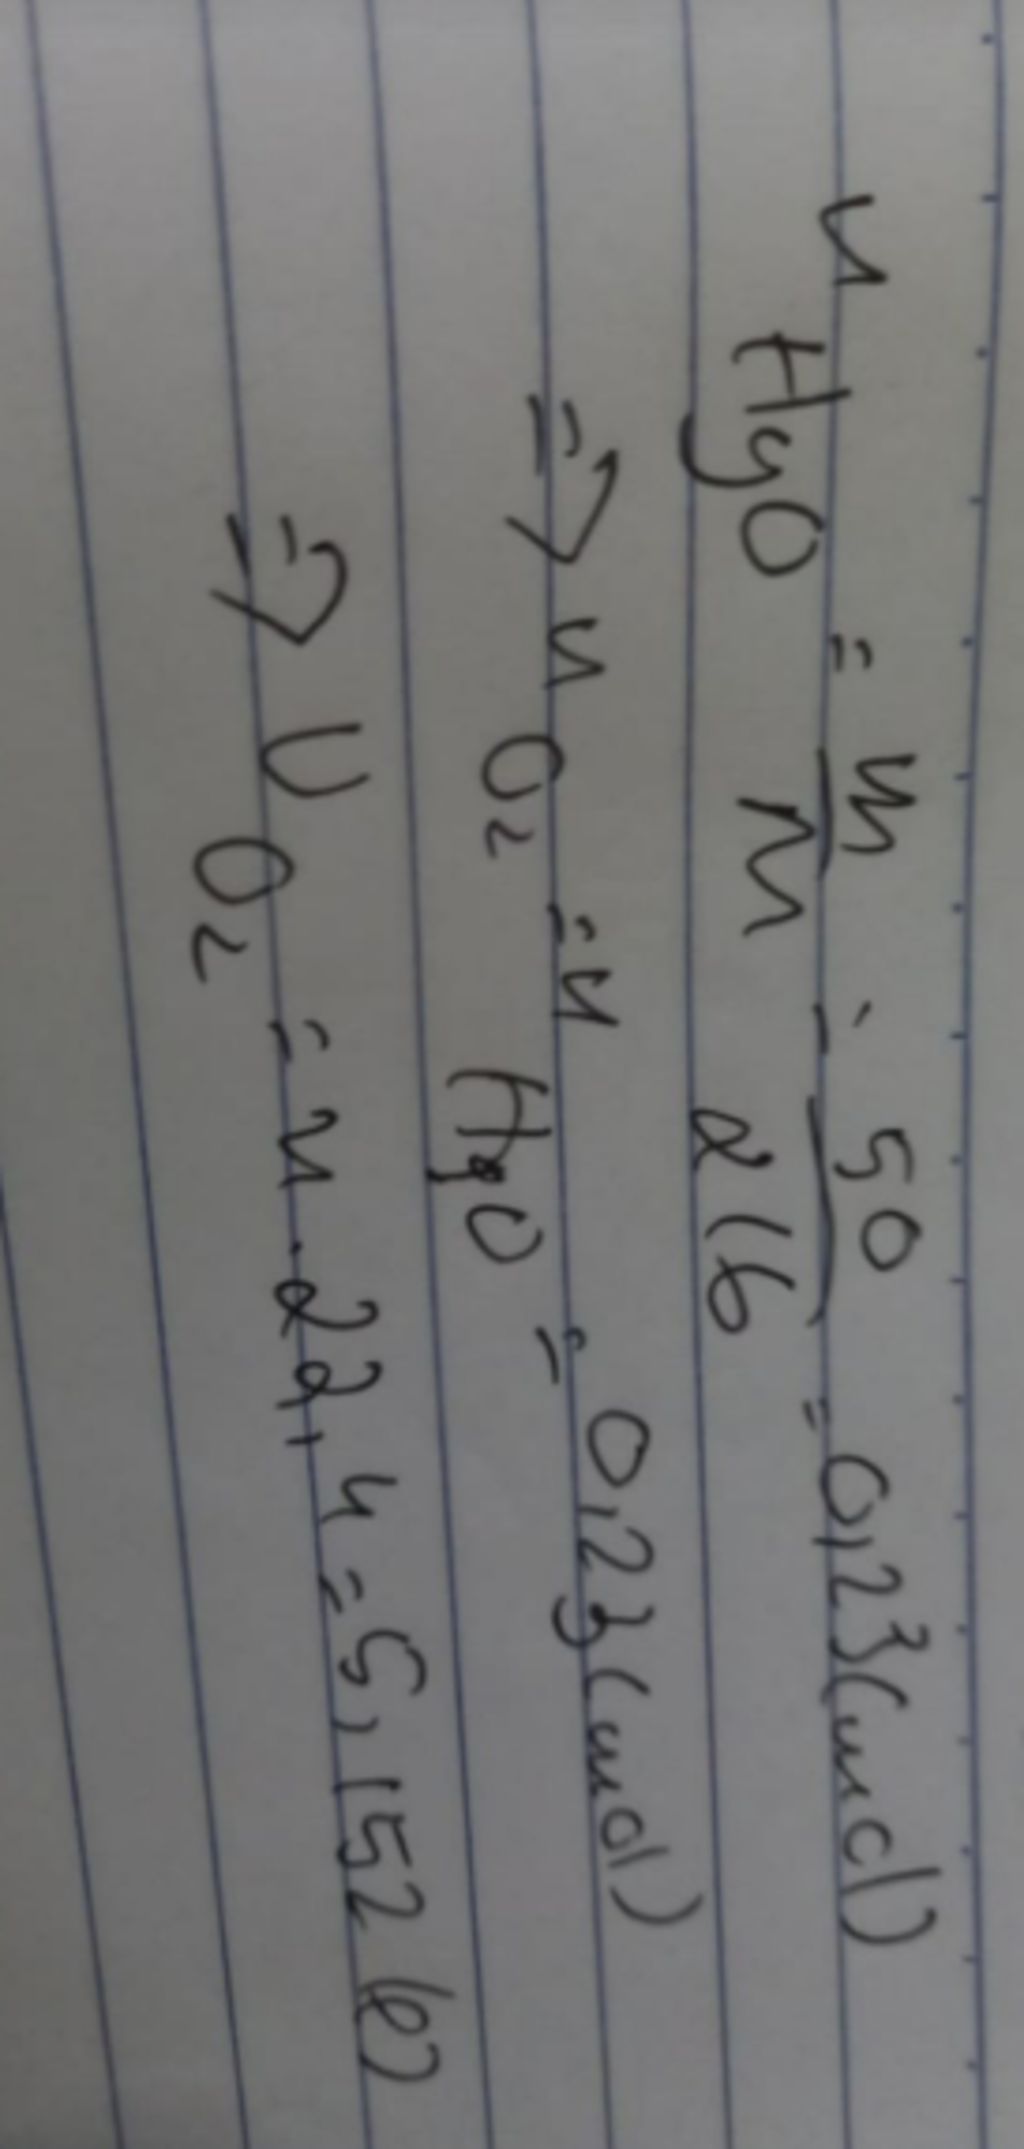 n HgO = m/M = 50/217 = 0,23 (mol)
=> n O2 = n HgO = 0,23 (mol)
=> V O2 = n. 22,4 = 5,152 (l)